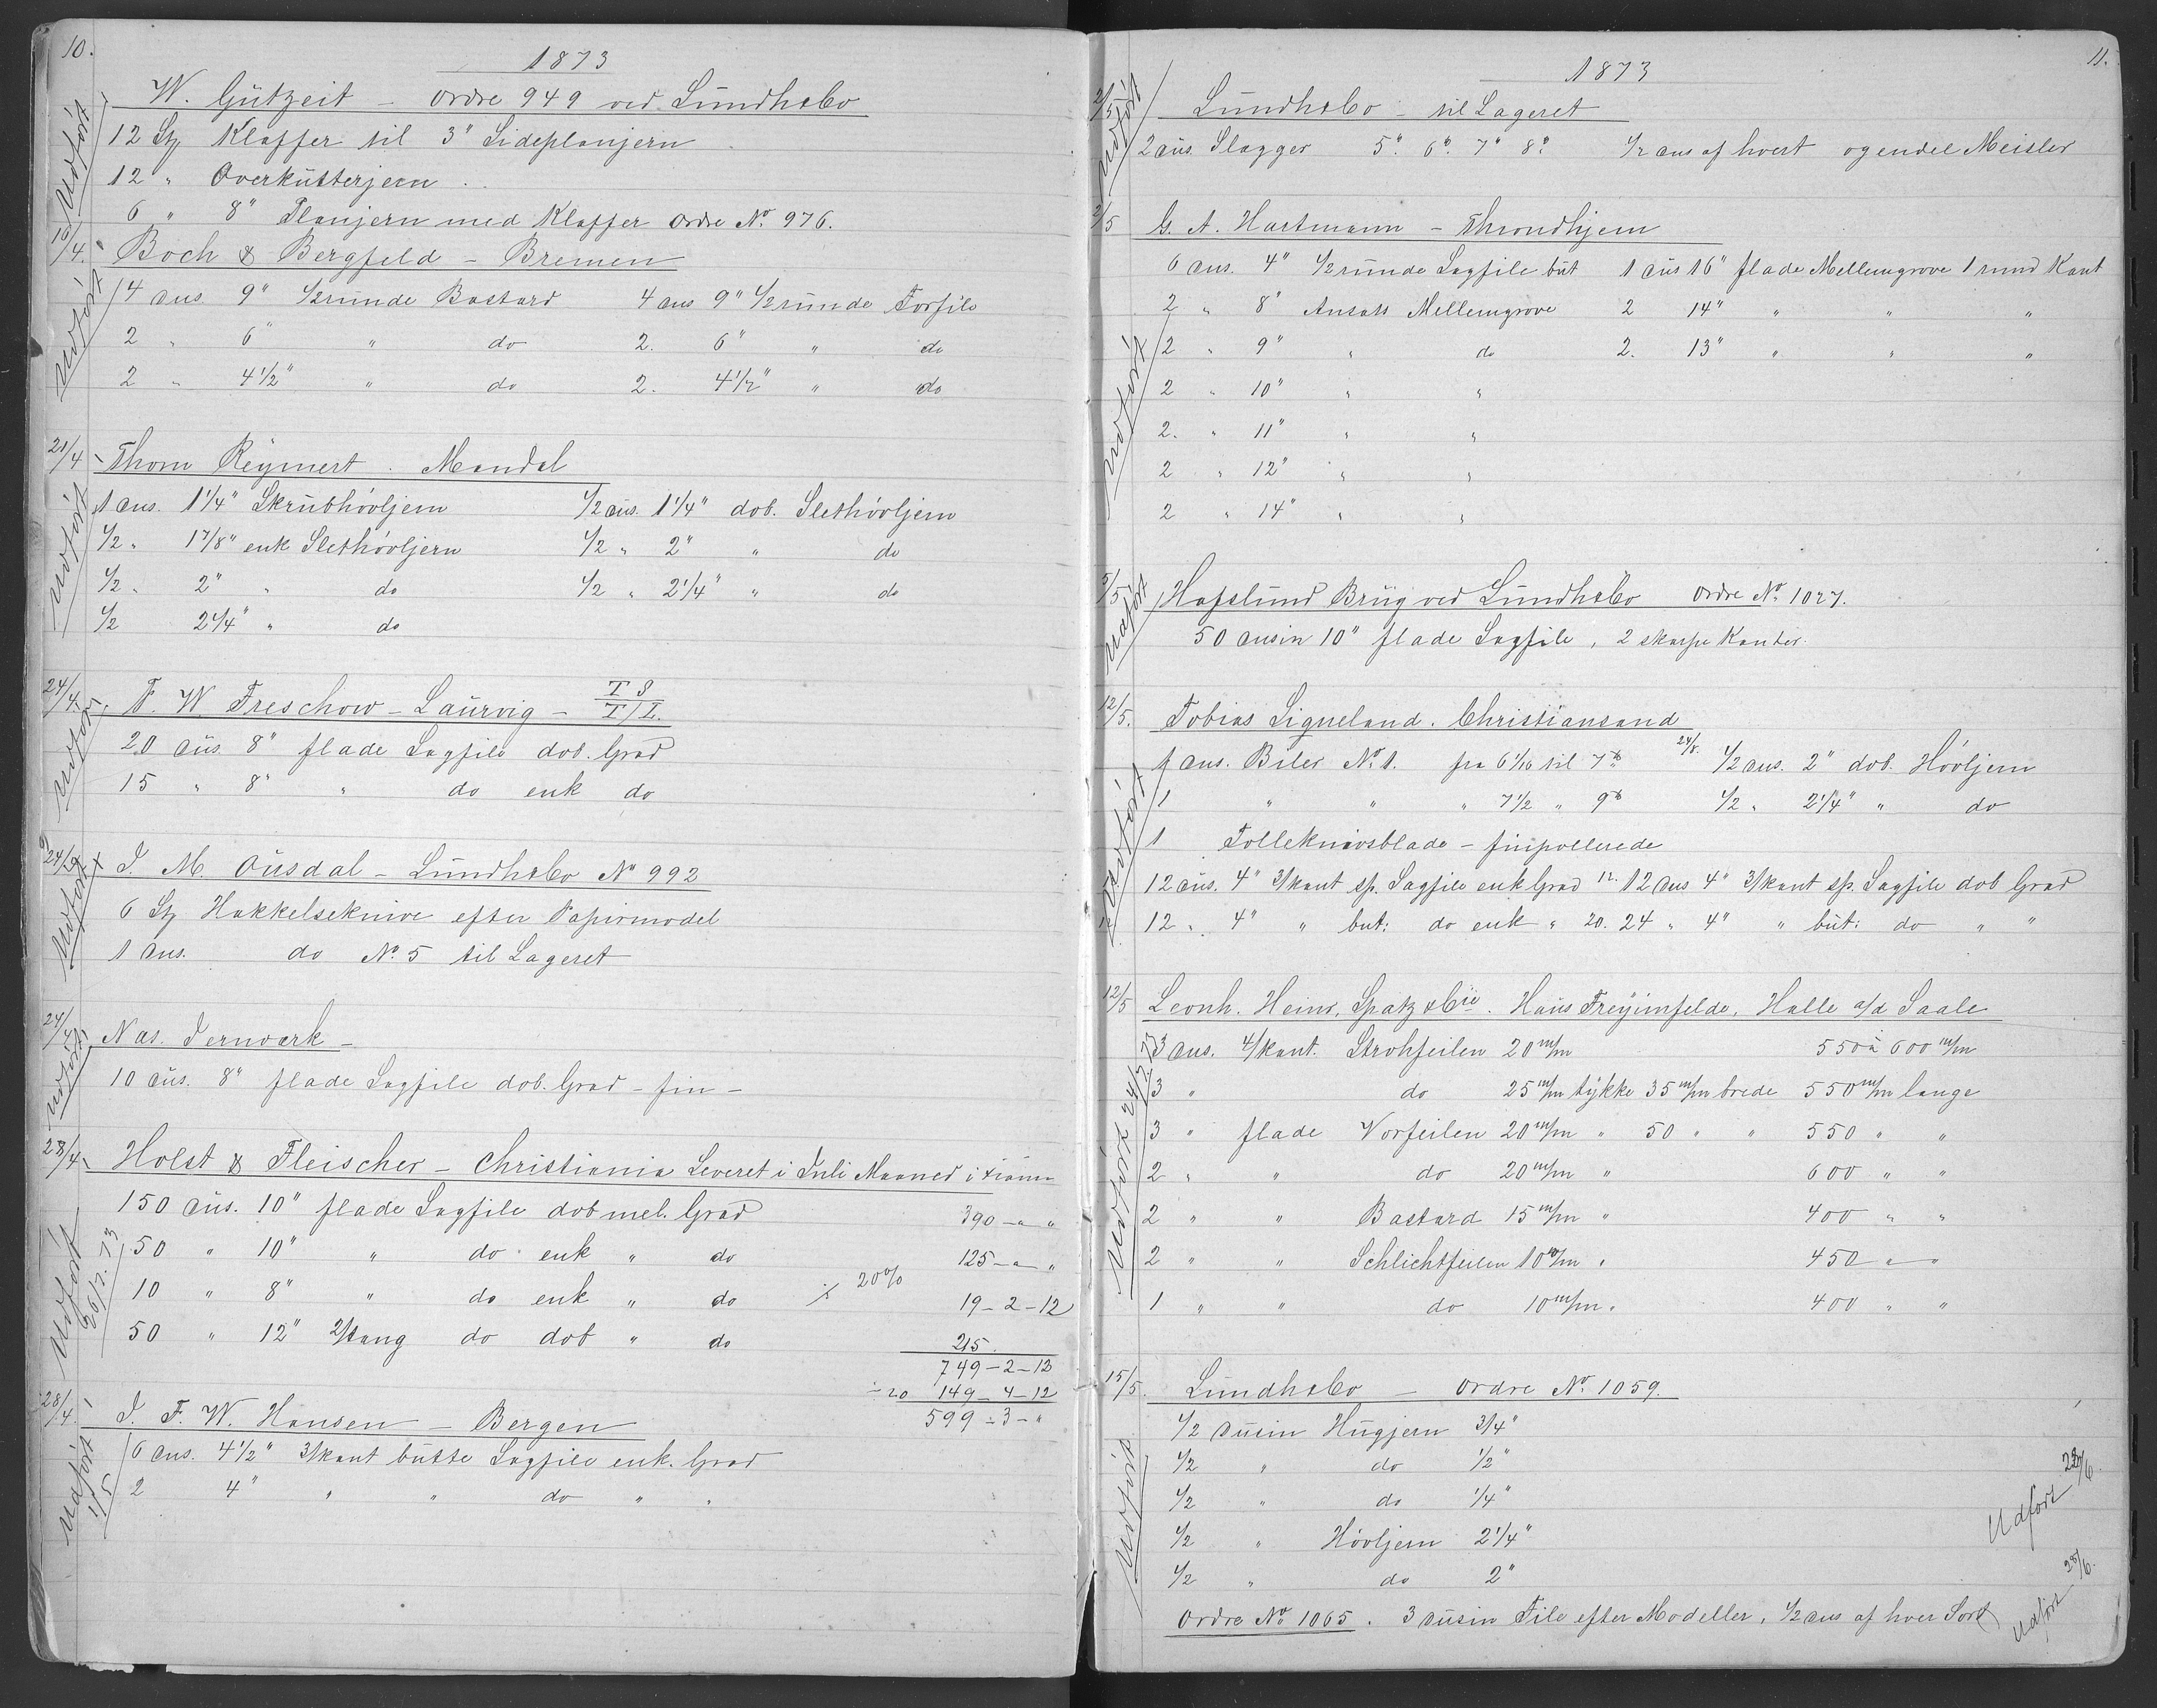 10.
1873
W. Gützeit – Ordre 949 ved Lündhsbo
12 St Klaffer til 3" Sideplanjern
12 " Overkütterjern
6 " 8" Planjern med Klaffer Ordre No. 976.
Udført
16/4. Boch & Bergfeld – Bremen
4 dus. 9" 1/2ründe Bastard 4 dus 9" 1/2 ründe Forfile
2 " 6" " do 2. 6" " do
2 " 4 1/2" " do 2. 4 1/2" " do
Udført
21/4 Thom Reÿmert . Mandal
1 dus. 1 1/4" Skrübhövljern 1/2 düs. 1 1/4" dob. Slethövljern
1/2 " 1 7/8" enk Slethövljern 1/2 " 2" " do
1/2 " 2" " do 1/2 " 2 1/4" " do
1/2 2 1/4" " do
Udført
24/4. F. W. Treschow – Laürvig – T S / T / L.
20 düs. 8" flade Sagfile dob. Grad
15 " 8" " do enk do
Udført
24/4 I. M. Oüsdal – Lündhsbo No 992
6 St Hakkelseknive efter Papirmodel
1 dus. do No. 5 til Lageret
Udført
24/4 Nas. Jernværk –
10 düs. 8" flade Sagfile dob. Grad – fin –
Udført
28/4 Holst & Fleischer – Christiania Leveret i Juli Maaned
150 düs. 10" flade Sagfile dob mel. Grad 390 – " "
50 " 10" " do enk " do 125 – " – "
10 " 8" " do enk " do 20% 19 – 2 – 12
50 " 12" 2/tang do dob " do 215.
749 – 2 – 12
÷ 20 149 – 4 – 12
599 – 3 – "
Udført 26/7. 73
28/4. I. F. W. Hansen – Bergen
6 dus. 4 1/2" 3/kant bütte Sagfile enk. Grad
2 4" " " do " "
Udført 1/5
11.
1873
2/5 Lündhsbo – til Lageret
2 düs. Slagger 5". 6". 7" 8". 1/2 dus af hvert og endel Meisler
Udført
2/5 G. A. Hartmann – Throndhjem
6 dus. 4" 1/2 ründe Sagfile büt 1 düs 16" flade Mellemgrove 1 rund Kant
2 " 8" Ansats Mellemgrove 2 14" " " "
2 " 9" " do 2. 13" " " "
2 " 10" " "
2. " 11" " "
2 " 12" " "
2 " 14" " "
Udført
5/5 Hafslünd Brüg ved Lündhsbo Ordre No. 1027.
50 dusin 10" flade Sagfile, 2 skarpe Kanter.
Udført
12/5. Tobias Ligneland. Christiansand
1 dus. Biler No. 1. fra 6 1/16 til 7 24/8. 1/2 dus. 2" dob. Hövljern
1 " " " 7 1/2 " 9 1/2 " 2 1/4" " do
1 Tolleknivsblade – finpollerede
12 düs. 4" 3/kant sp. Sagfile enk Grad 12. 12 dus 4" 3/kant sp. Sagfile dob Grad
12 " 4" " but: do enk " 20. 24 " 4" " büt: do " "
Udført
12/5 Leonh. Heinr. Spatz & Cie. Haüs Freÿimfelde, Halle a/d Saale
3 dus. 4/kant. Strohfeilen 20 m/m 550 à 600 m/m
3 " do 25 m/m tÿkke 35 m/m brede 550 m/m lange
3 " flade Vorfeilen 20 m/m " 50 " " 550 " "
2 " " do 20 m/m " 600 " "
2 " " Bastard 15 m/m " 400 " "
2 " " Schlichtfeilen 10 m/m " 450 " "
1 " " do 10 m/m " 400 " "
Udført 24/7 73
15/5. Lündhsbo – Ordre No. 1059.
1/2 düsin Hügjern 3/4"
1/2 " do 1/2"
1/2 " do 1/4"
1/2 " Hövljern 2 1/4"
1/2 " do 2"
Udført
Udført 23/6.
Ordre No. 1065. 3 düsin File efter Modeller, 1/2 dus af hver Sort
Udført 28/6.